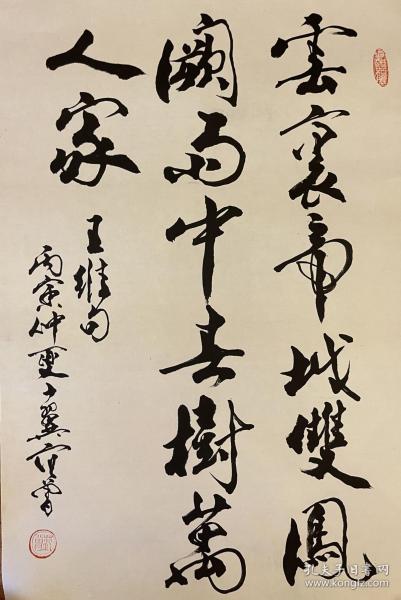 雲裏帝城雙鳳
闕雨中春樹萬
人家
王維句
丙寅仲夏
孔夫子旧书网
www.kongfz.com